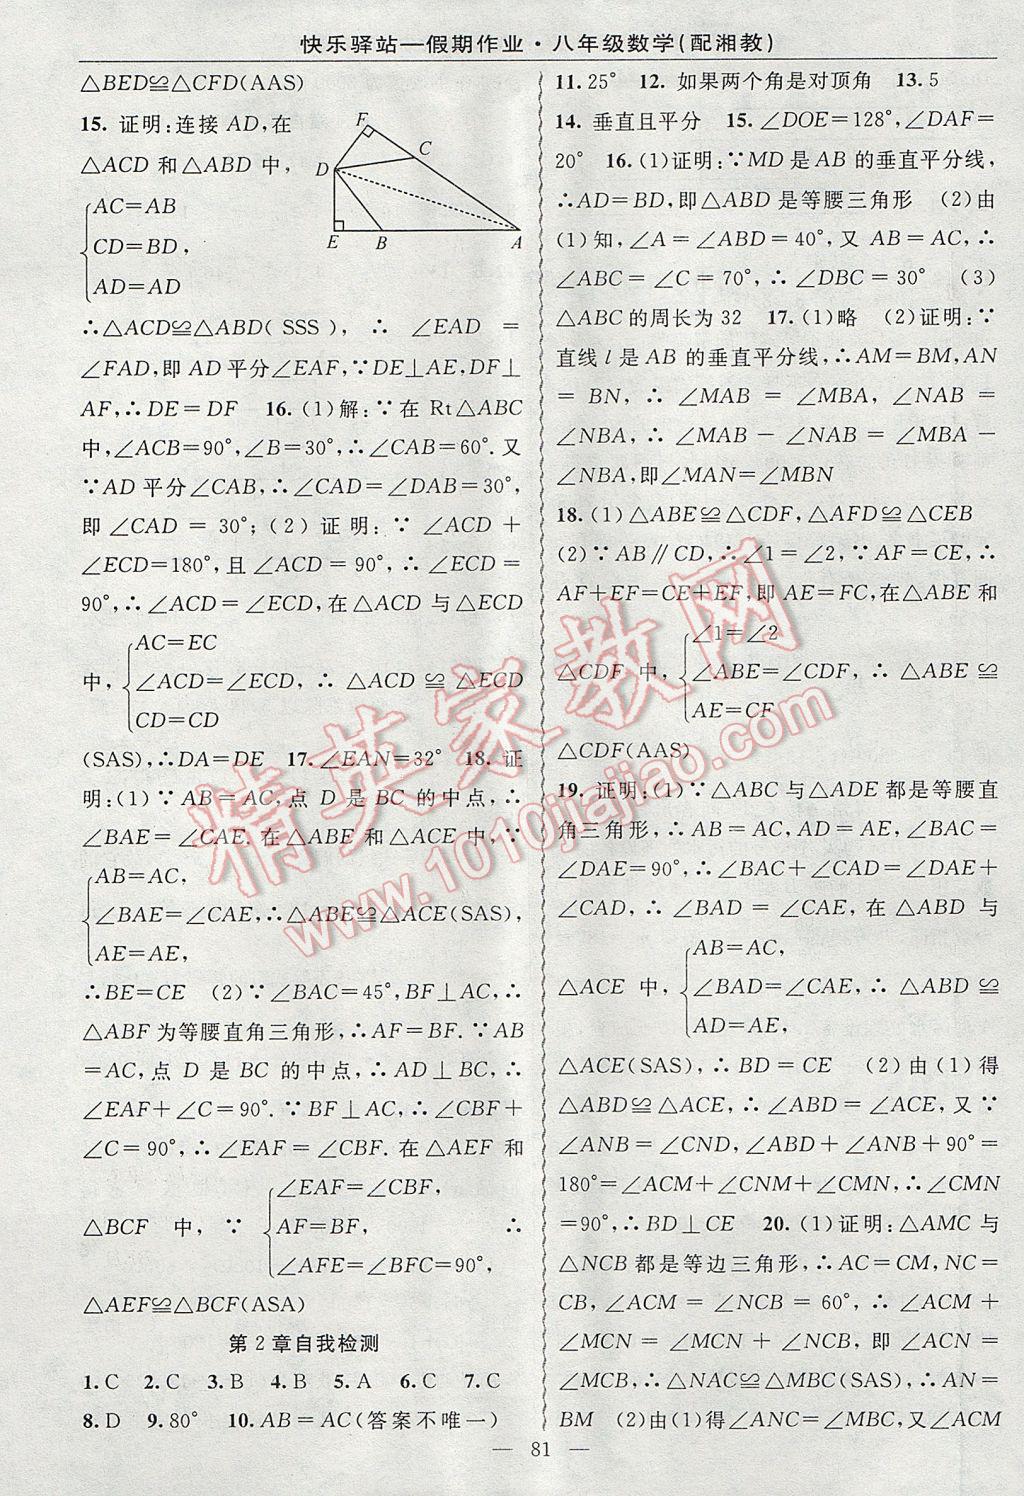 快乐驿站—假期作业·八年级数学(配湘教)
△BED≌△CFD(AAS)
15. 证明:连接 AD,在
△ACD 和△ABD 中,
AC=AB
CD=BD,
AD=AD
F
C
D
E
B
A
∴△ACD≌△ABD( SSS ), ∴ ∠EAD =
∠FAD,即 AD 平分∠EAF,∵DE⊥AE,DF⊥
AF,∴DE=DF 16. (1)解:∵在 Rt△ABC
中,∠ACB=90°,∠B=30°,∴∠CAB=60°. 又
∵AD 平分∠CAB,∴∠CAD=∠DAB=30°,
即∠CAD = 30°; (2) 证明: ∵ ∠ACD +
∠ECD=180°,且∠ACD = 90°,∴∠ECD=
90°,∴∠ACD=∠ECD,在△ACD 与△ECD
AC=EC
中, ∠ACD=∠ECD, ∴ △ACD ≌ △ECD
CD=CD
(SAS),∴DA=DE 17. ∠EAN=32° 18. 证
明:(1)∵AB=AC,点 D 是 BC 的中点,∴
∠BAE=∠CAE. 在△ABE 和△ACE 中,∵
AB=AC,
∠BAE=∠CAE,∴△ABE≌△ACE(SAS),
AE=AE,
∴BE=CE (2)∵∠BAC=45°,BF⊥AC,∴
△ABF 为等腰直角三角形,∴AF=BF. ∵AB
=AC,点 D 是 BC 的中点,∴AD⊥BC,∴
∠EAF+∠C=90°. ∵BF⊥AC,∴∠CBF+
∠C=90°,∴∠EAF=∠CBF. 在△AEF 和
∠EAF=∠CBF,
△BCF 中, ∵ AF=BF, ∴
∠AFE=∠BFC=90°,
△AEF≌△BCF(ASA)
第 2 章自我检测
1. C 2. C 3. B 4. B 5. A 6. C 7. C
8. D 9. 80° 10. AB=AC(答案不唯一)
11. 25° 12. 如果两个角是对顶角 13. 5
14. 垂直且平分 15. ∠DOE=128°,∠DAF=
20° 16. (1)证明:∵MD 是 AB 的垂直平分线,
∴AD=BD,即△ABD 是等腰三角形 (2)由
(1)知,∠A=∠ABD=40°,又 AB=AC,∴
∠ABC=∠C=70°,∴∠DBC=30° (3)
△ABC 的周长为 32 17. (1)略 (2)证明:∵
直线 l 是 AB 的垂直平分线,∴AM=BM,AN
= BN, ∴ ∠MAB = ∠MBA, ∠NAB =
∠NBA, ∴ ∠MAB − ∠NAB = ∠MBA −
∠NBA,即∠MAN=∠MBN
18. (1)△ABE≌△CDF,△AFD≌△CEB
(2)∵AB∥CD,∴∠1=∠2,∵AF=CE,∴
AF+EF=CE+EF,即 AE=FC,在△ABE 和
∠1=∠2
△CDF 中, ∠ABE=∠CDF, ∴ △ABE ≌
AE=CF
△CDF(AAS)
19. 证明:(1)∵△ABC 与△ADE 都是等腰直
角三角形,∴AB=AC,AD=AE,∠BAC=
∠DAE=90°,∴∠BAC+∠CAD=∠DAE+
∠CAD,∴∠BAD=∠CAE,在△ABD 与
AB=AC,
△ACE 中, ∠BAD=∠CAE, ∴ △ABD ≌
AD=AE,
△ACE(SAS),∴BD=CE (2)由(1)得
△ABD≌△ACE,∴∠ABD=∠ACE,又∵
∠ANB=∠CND,∠ABD+∠ANB+90°=
180°=∠ACM+∠CNM+∠CMN,∴∠CMN
=90°,∴BD⊥CE 20. (1)证明:△AMC 与
△NCB 都是等边三角形,∴AC=CM,NC=
CB,∠ACM=∠NCB = 60°,∴∠ACM +
∠MCN = ∠MCN + ∠NCB, 即 ∠ACN =
∠MCB,∴△NAC≌△MBC(SAS),∴AN=
BM (2)由(1)得∠ANC=∠MBC,又△ACM
— 81 —
精英家教网
www.1010jiajiao.com